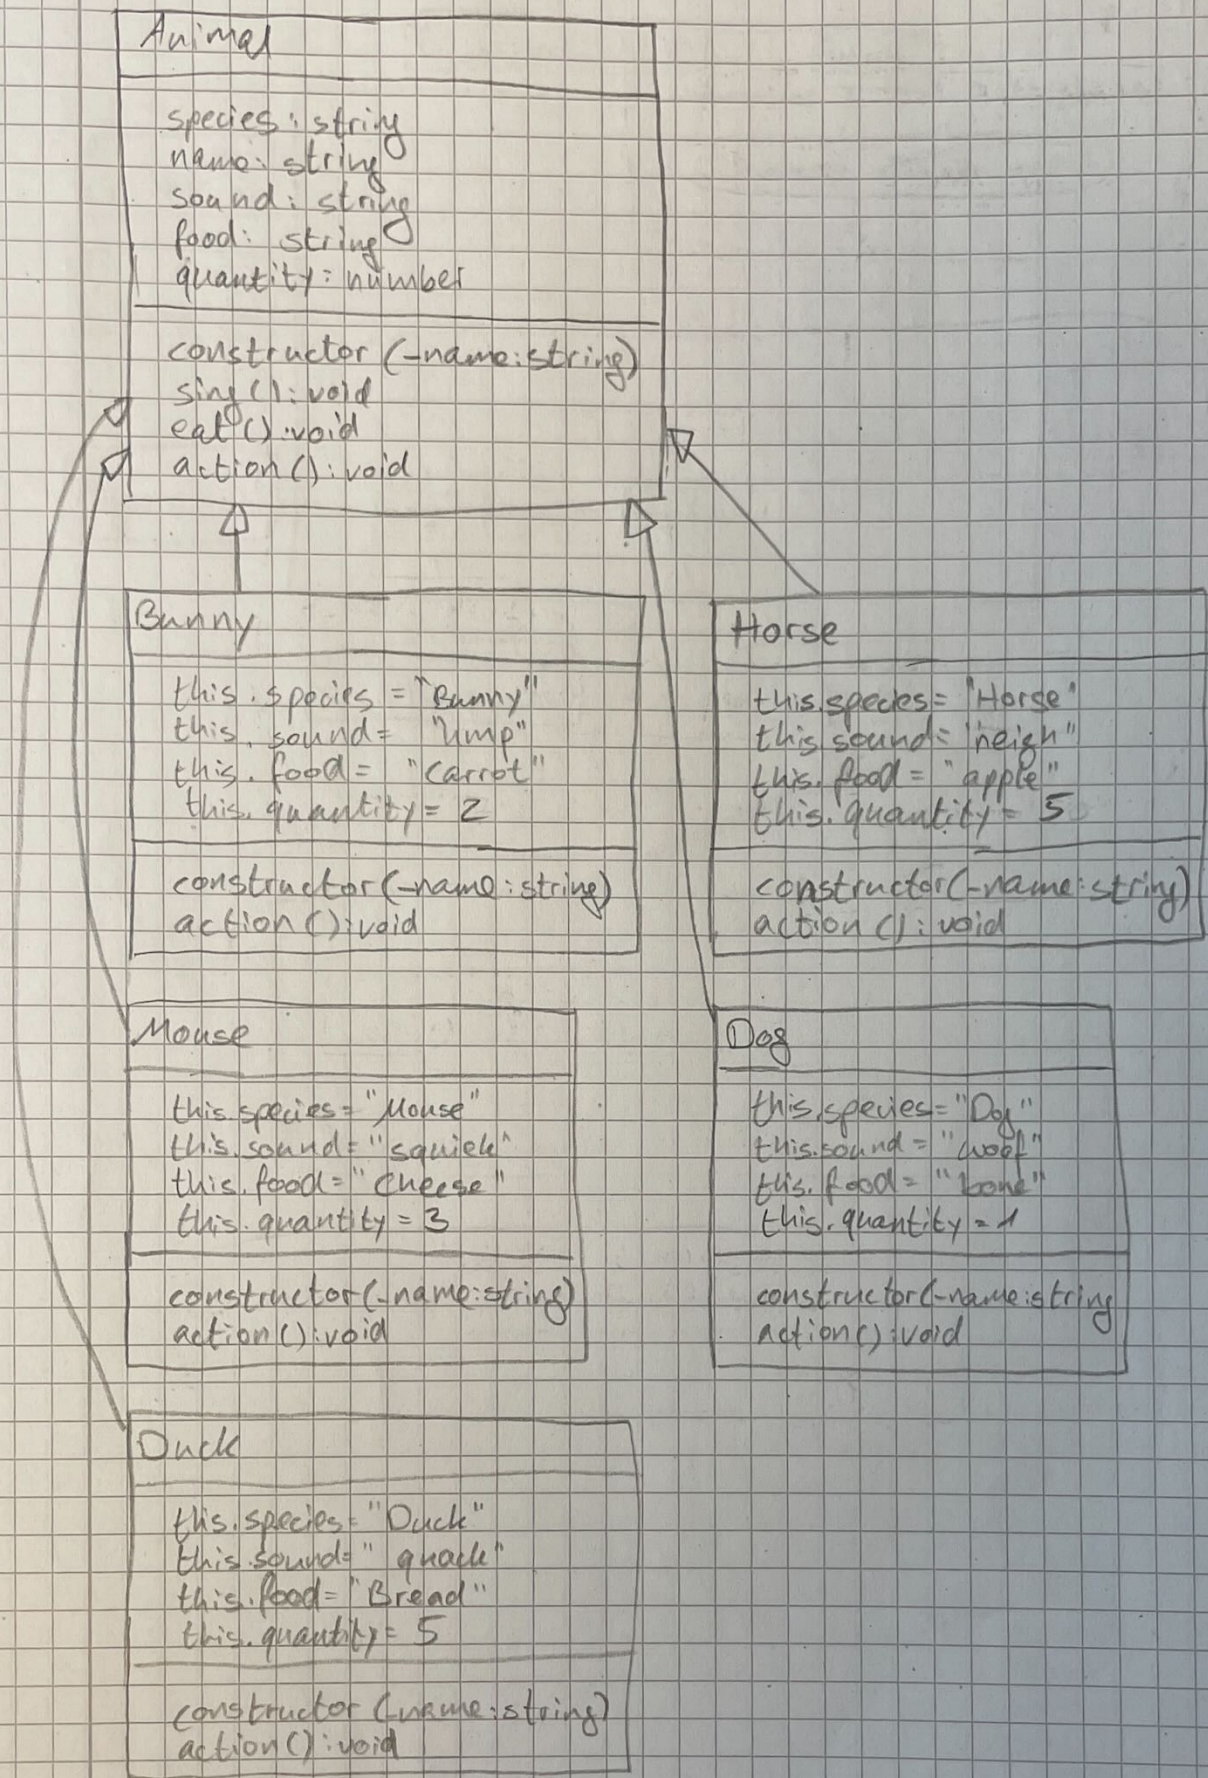 Animal
species: string
name: string
sound: string
food: string
quantity: number
constructor (_name:string)
sing():void
eat():void
action():void
Bunny
this.species = "Bunny"
this.sound= "ump"
this.food= "carrot"
this.quantity = 2
constructor(_name:string)
action():void
Horse
this.species= "Horse"
this sound= "neigh"
this.food= "apple"
this.quantity = 5
constructor(_name:string)
action():void
Mouse
this.species= "Mouse"
this.sound= "squiek"
this.food= "Cheese"
this.quantity = 3
constructor(_name:string)
action():void
Dog
this.species= "Dog"
this.sound = "woof"
this.food= "bone"
this.quantity = 1
constructor(_name:string
action():void
Duck
this.species= "Duck"
this.sound= "quack"
this.food= "Bread"
this.quantity= 5
constructor (_name:string)
action():void